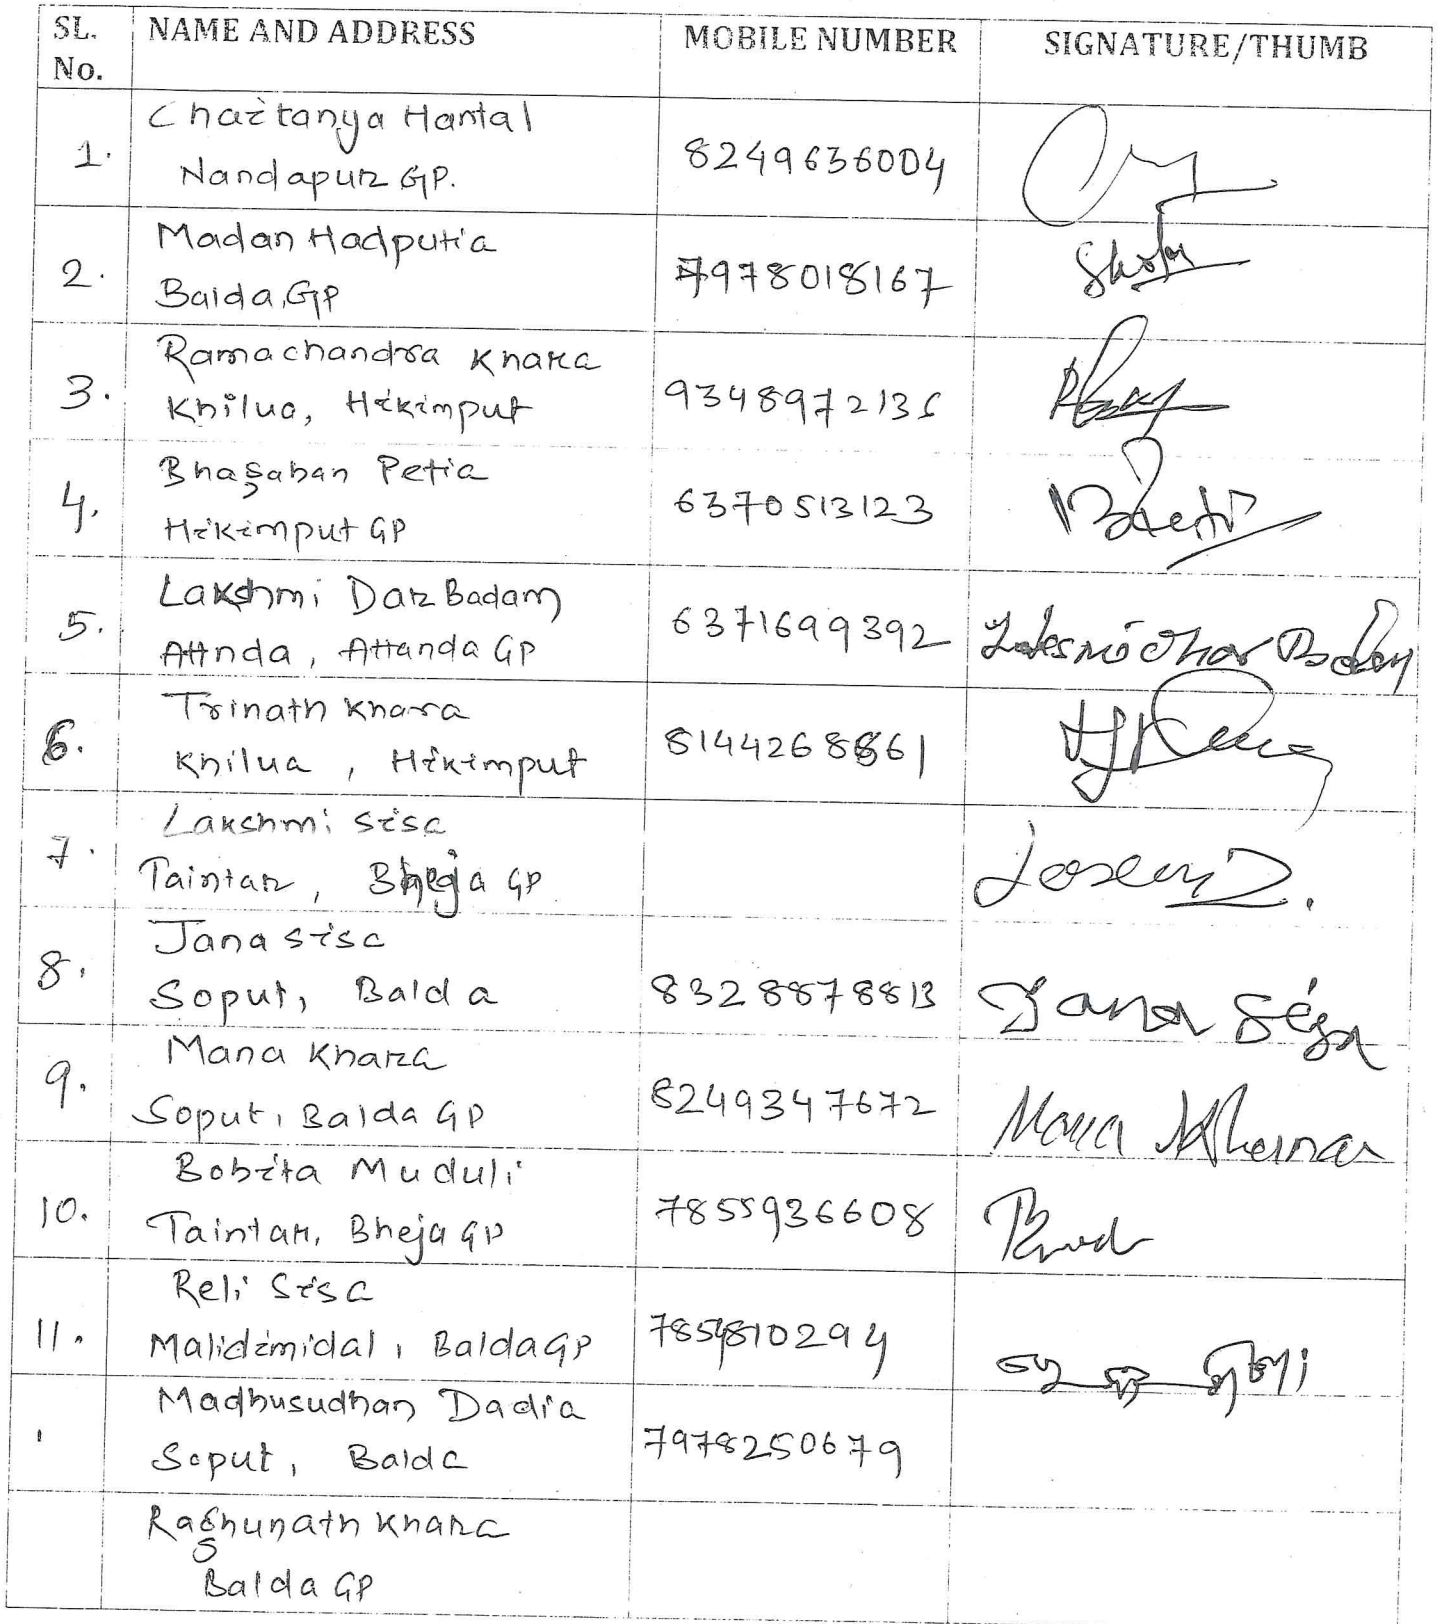 SL. No. NAME AND ADDRESS MOBILE NUMBER SIGNATURE/THUMB
1. Chaitanya Hantal
Nandapur GP. 8249636004
2. Madan Hadputia
Balda, GP 7978018167
3. Ramachandra Khara
Khilua, Hikimput 9348972136
4. Bhagaban Petia
Hikimput GP 6370513123
5. Lakshmi Dar Badam
Attnda, Attanda GP 6371699392
6. Trinath Khara
Khilua, Hikimput 8144268861
7. Lakshmi Sisa
Taintar, Bheja GP
8. Jana Sisa
Soput, Balda 8328878813 Jana
9. Mana Khara
Soput, Balda GP 8249347672 Mana
10. Bobita Muduli
Taintar, Bheja GP 7855936608
11. Reli Sisa
Malidimidal, Balda GP 7854810294
Madhusudhan Dadia
Soput, Balda 7978250679
Raghunath Khara
Balda GP